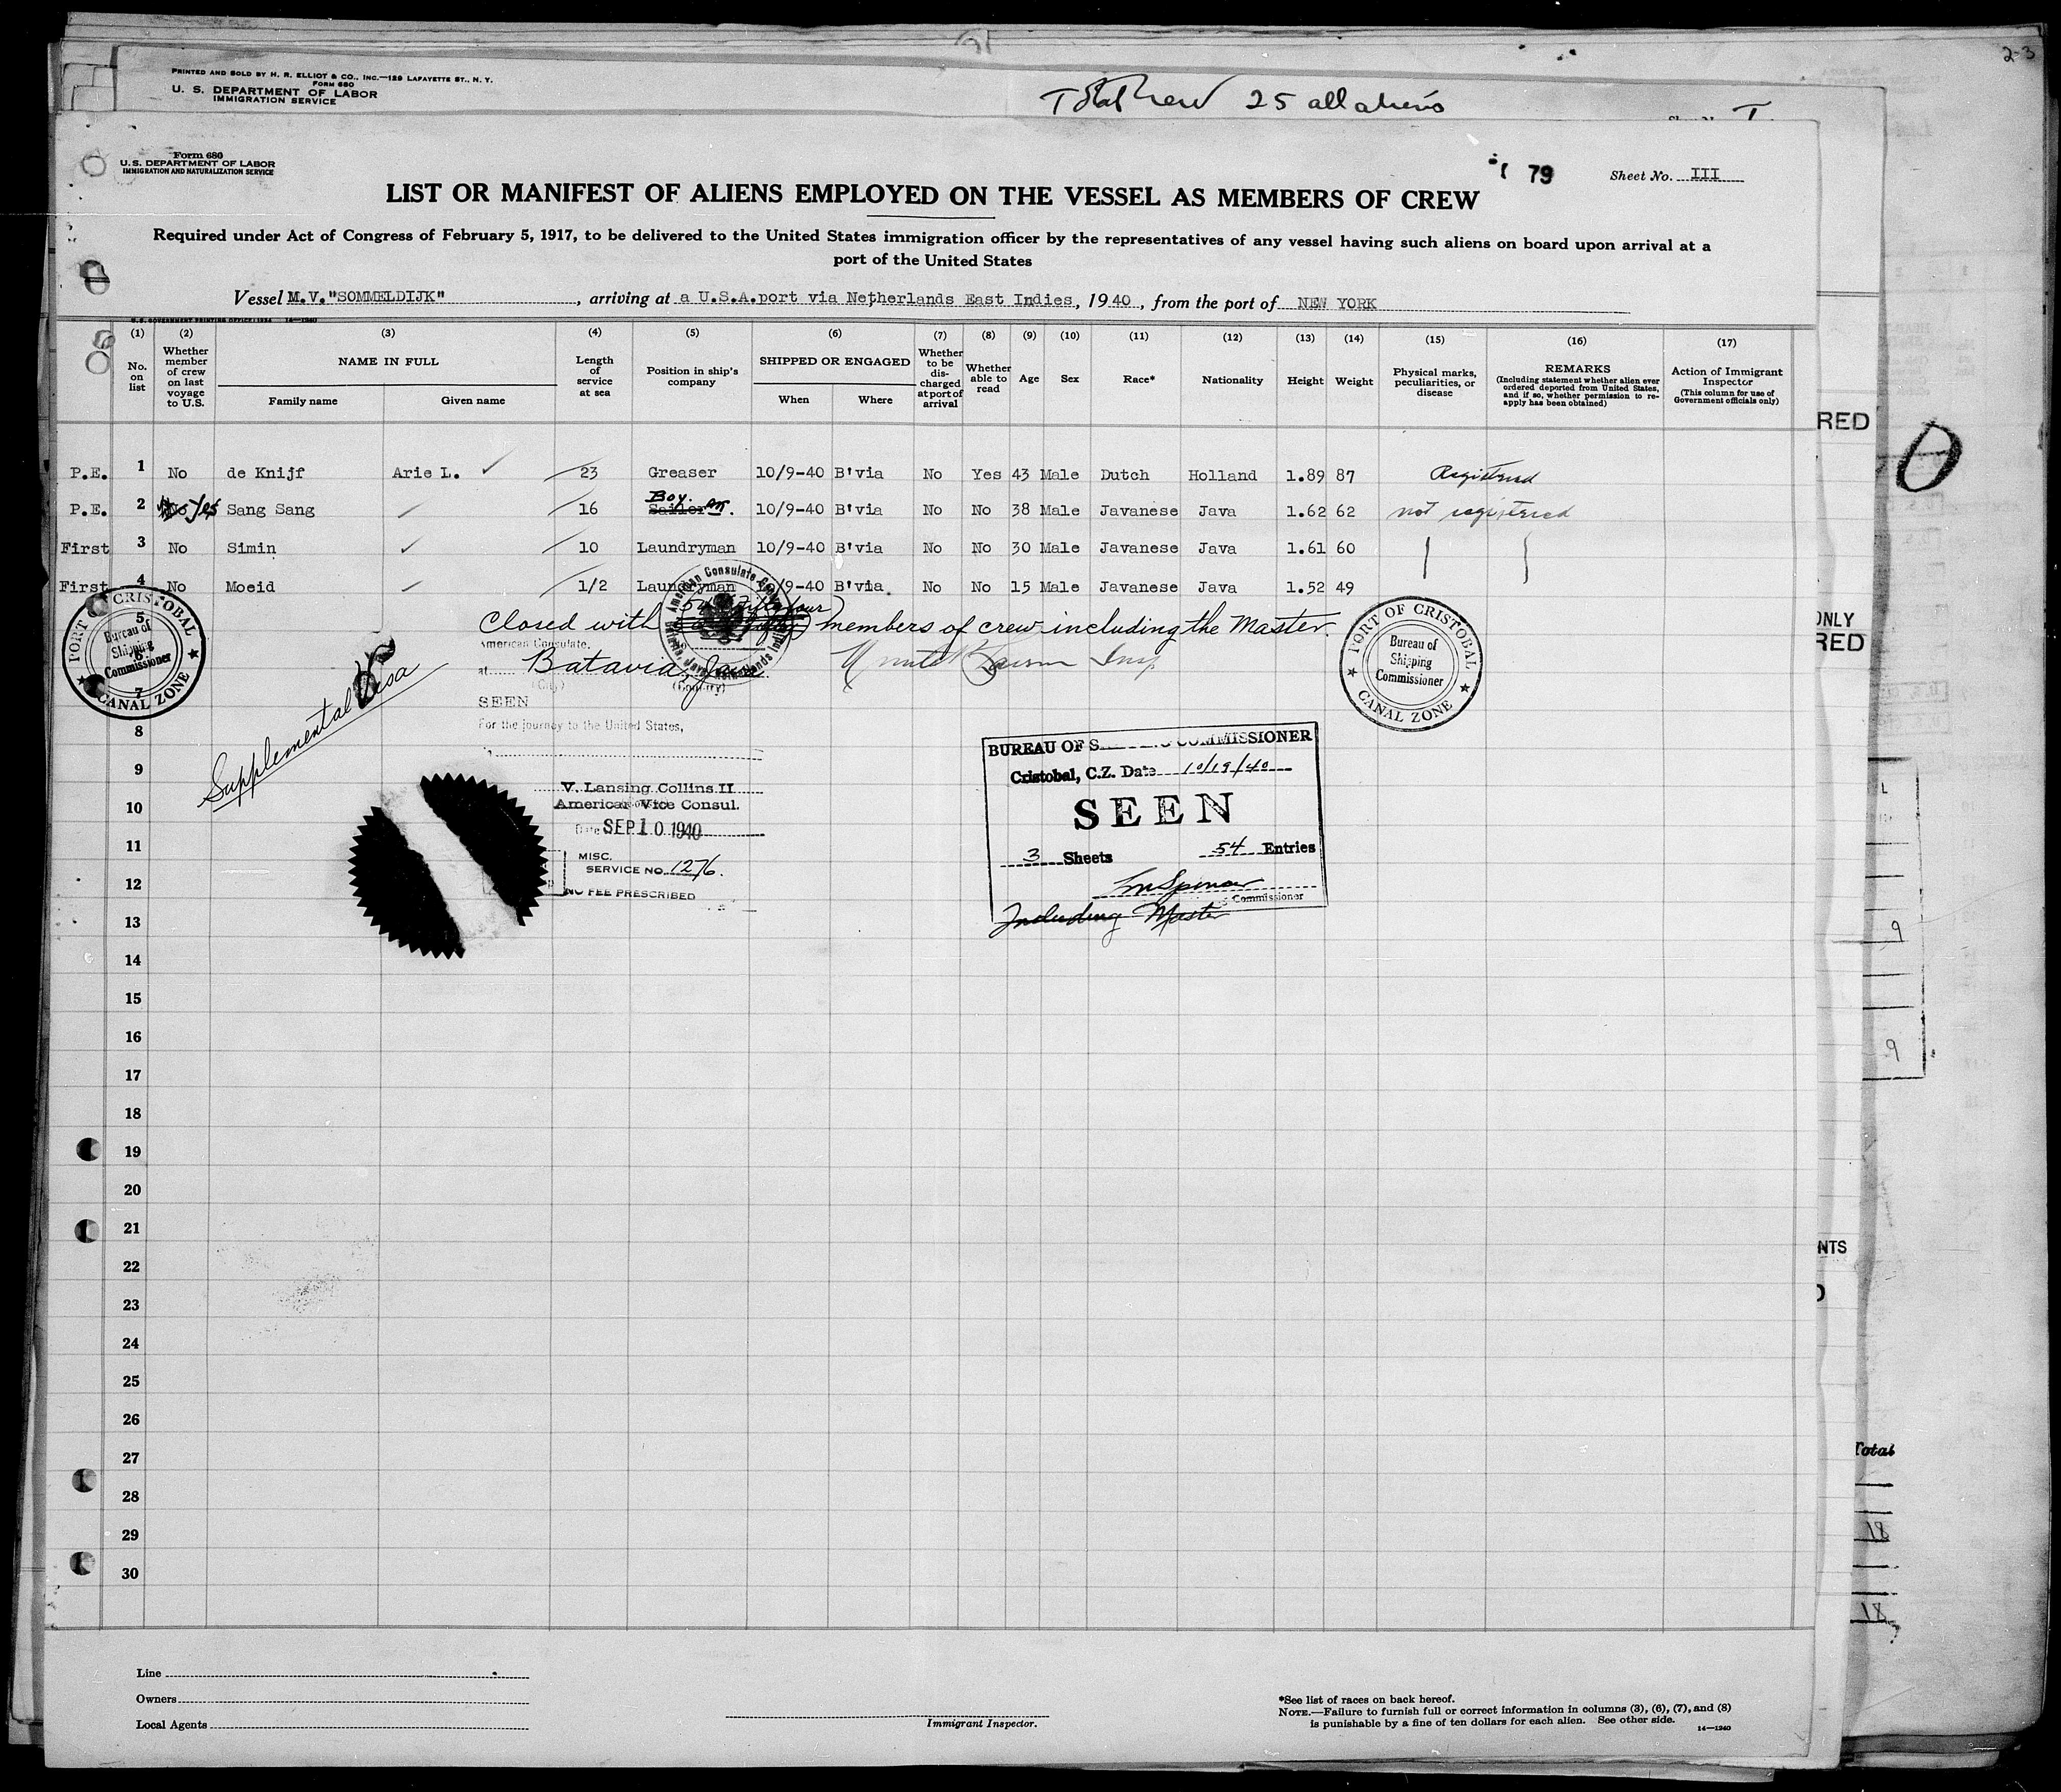 2-3
PRINTED AND SOLD BY H. R. ELLIOT & CO., INC.—129 LAFAYETTE ST., N. Y.
FORM 680
U. S. DEPARTMENT OF LABOR
IMMIGRATION SERVICE
25 all aliens
I
Form 680
U.S. DEPARTMENT OF LABOR
IMMIGRATION AND NATURALIZATION SERVICE
79
Sheet No. III
LIST OR MANIFEST OF ALIENS EMPLOYED ON THE VESSEL AS MEMBERS OF CREW
Required under Act of Congress of February 5, 1917, to be delivered to the United States immigration officer by the representatives of any vessel having such aliens on board upon arrival at a
port of the United States
Vessel M.V."SOMMELDIJK", arriving at a U.S.A.port via Netherlands East Indies, 1940, from the port of NEW YORK
(1) (2) (3) (4) (5) (6) (7) (8) (9) (10) (11) (12) (13) (14) (15) (16) (17)
No. on list
Whether member of crew on last voyage to U.S.
NAME IN FULL
Family name Given name
Length of service at sea
Position in ship's company
SHIPPED OR ENGAGED
When Where
Whether to be discharged at port of arrival
Whether able to read
Age
Sex
Race*
Nationality
Height
Weight
Physical marks, peculiarities, or disease
REMARKS
(Including statement whether alien ever ordered deported from United States, and if so, whether permission to re-apply has been obtained)
Action of Immigrant Inspector
(This column for use of Government officials only)
P.E. 1 No de Knijf Arie L. 23 Greaser 10/9-40 B'via No Yes 43 Male Dutch Holland 1.89 87 Registered
P.E. 2 No Yes Sang Sang 16 Sailor Boy. 10/9-40 B'via No No 38 Male Javanese Java 1.62 62 not registered
First 3 No Simin 10 Laundryman 10/9-40 B'via No No 30 Male Javanese Java 1.61 60
First 4 No Moeid 1/2 Laundryman /9-40 B'via. No No 15 Male Javanese Java 1.52 49
Closed with 54 members of crew including the Master.
American Consulate,
at Batavia, Java
(City) (Country)
SEEN
For the journey to the United States,
V. Lansing Collins II
American Vice Consul.
Date SEP 10 1940
MISC.
SERVICE NO. 1276.
NO FEE PRESCRIBED
Supplemental Visa
PORT OF CRISTOBAL
Bureau of
Shipping
Commissioner
CANAL ZONE
PORT OF CRISTOBAL
Bureau of
Shipping
Commissioner
CANAL ZONE
BUREAU OF S COMMISSIONER
Cristobal, C.Z. Date 10/19/40
SEEN
3 Sheets 54 Entries
Commissioner
Including Master
5
6
7
8
9
10
11
12
13
14
15
16
17
18
19
20
21
22
23
24
25
26
27
28
29
30
Line
Owners
Local Agents
Immigrant Inspector.
*See list of races on back hereof.
NOTE.—Failure to furnish full or correct information in columns (3), (6), (7), and (8)
is punishable by a fine of ten dollars for each alien. See other side.
14—1240
RED
ONLY
RED
L
9
9
NTS
Total